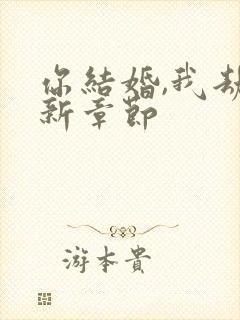 你結婚,我劫
新章節
游本貴